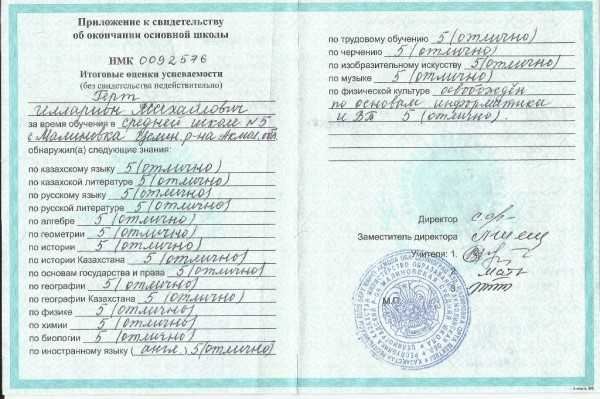 Приложение к свидетельству
об окончании основной школы
НМК 0092576
Итоговые оценки успеваемости
(без свидетельства недействительно)
Герт
Илларион Михайлович
за время обучения в средней школе №5
с. Малиновка Целин р-на Акмол. обл
обнаружил(а) следующие знания:
по казахскому языку 5 (отлично)
по казахской литературе 5 (отлично)
по русскому языку 5 (отлично)
по русской литературе 5 (отлично)
по алгебре 5 (отлично)
по геометрии 5 (отлично)
по истории 5 (отлично)
по истории Казахстана 5 (отлично)
по основам государства и права 5 (отлично)
по географии 5 (отлично)
по географии Казахстана 5 (отлично)
по физике 5 (отлично)
по химии 5 (отлично)
по биологии 5 (отлично)
по иностранному языку (англ.) 5 (отлично)
по трудовому обучению 5 (отлично)
по черчению 5 (отлично)
по изобразительному искусству 5 (отлично)
по музыке 5 (отлично)
по физической культуре освобождён
по основам информатика
и ВТ 5 (отлично)
Директор
Заместитель директора
Учителя: 1.
2.
3.
М.П.